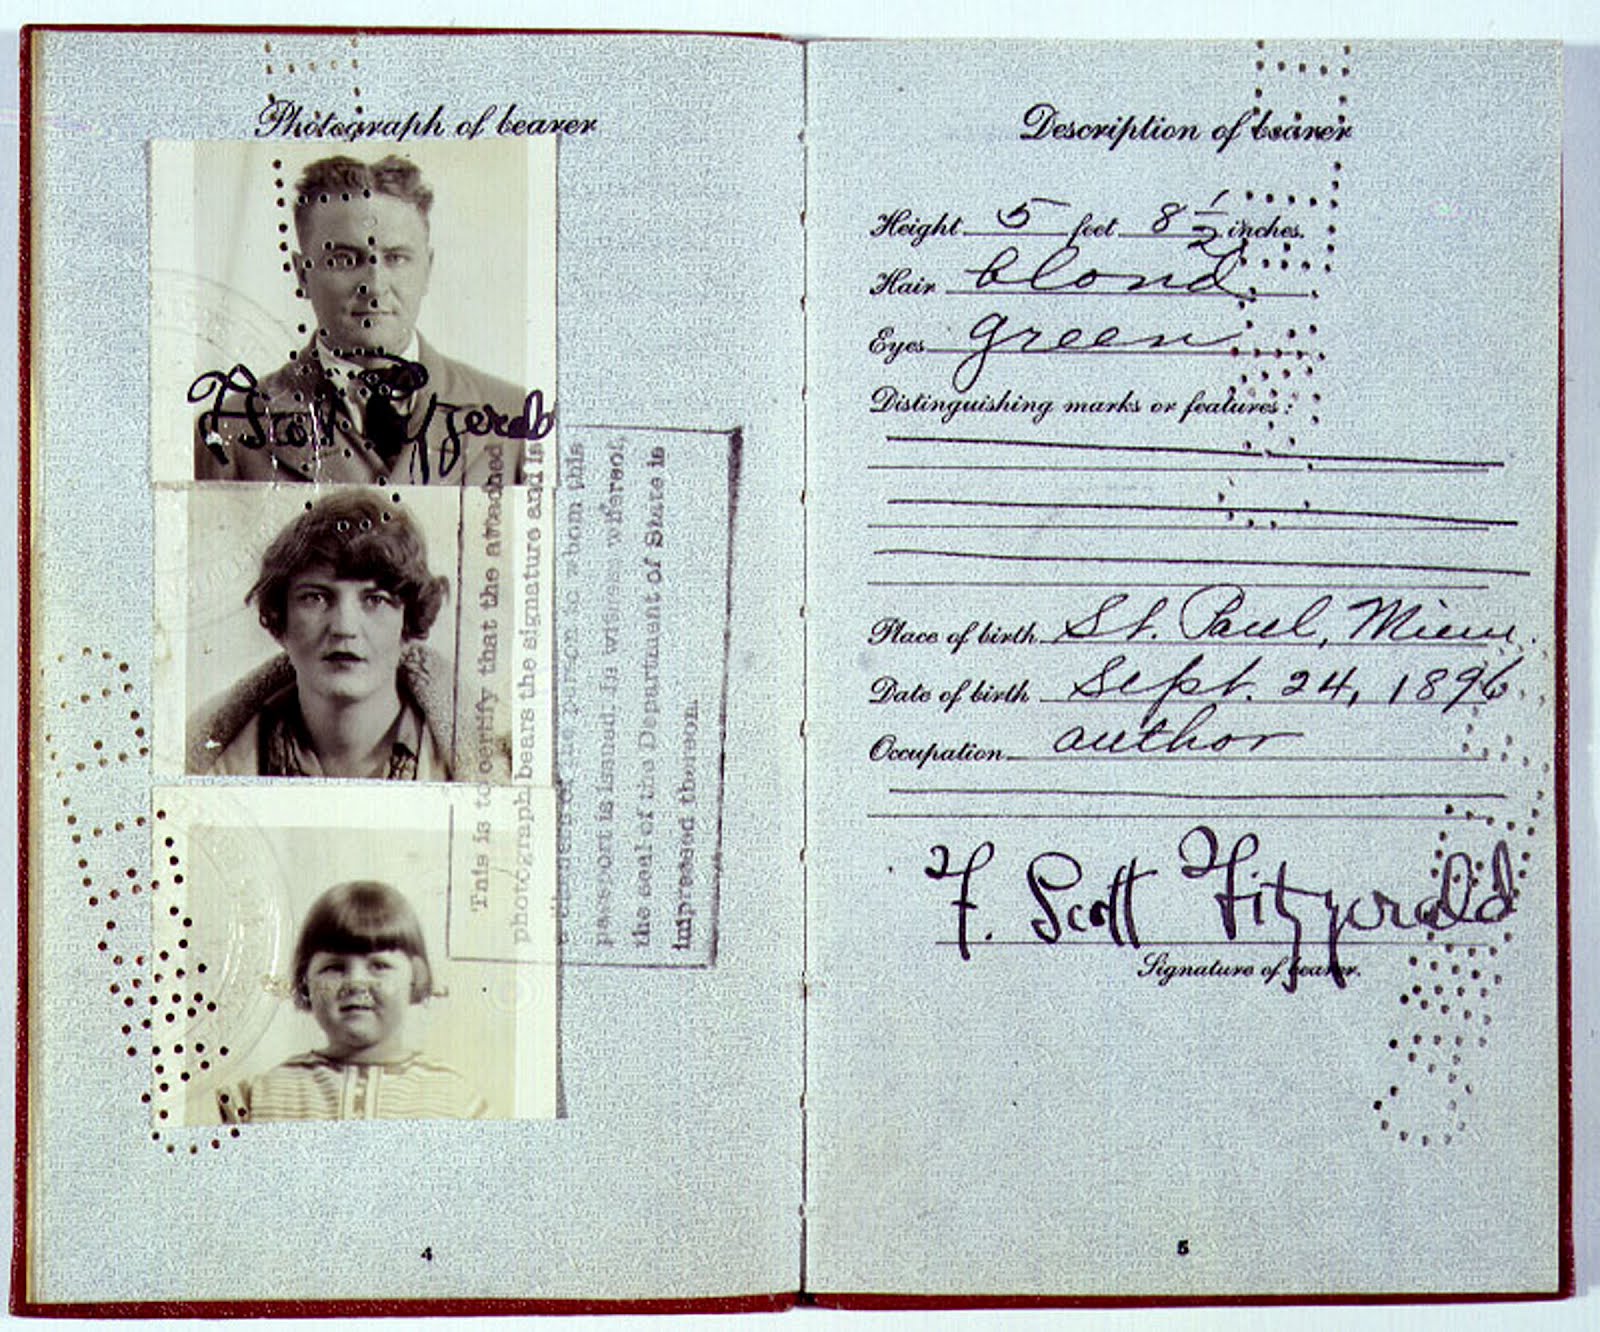 Photograph of bearer
F Scott Fitzgerald
This is to certify that the attached
photograph bears the signature and is
a likeness of the person to whom this
passport is issued. In witness whereof,
the seal of the Department of State is
impressed thereon.
4
Description of bearer
Height 5 feet 8 1/2 inches.
Hair blond
Eyes green
Distinguishing marks or features:
Place of birth St. Paul, Minn.
Date of birth Sept. 24, 1896
Occupation author
F. Scott Fitzgerald
Signature of bearer.
5